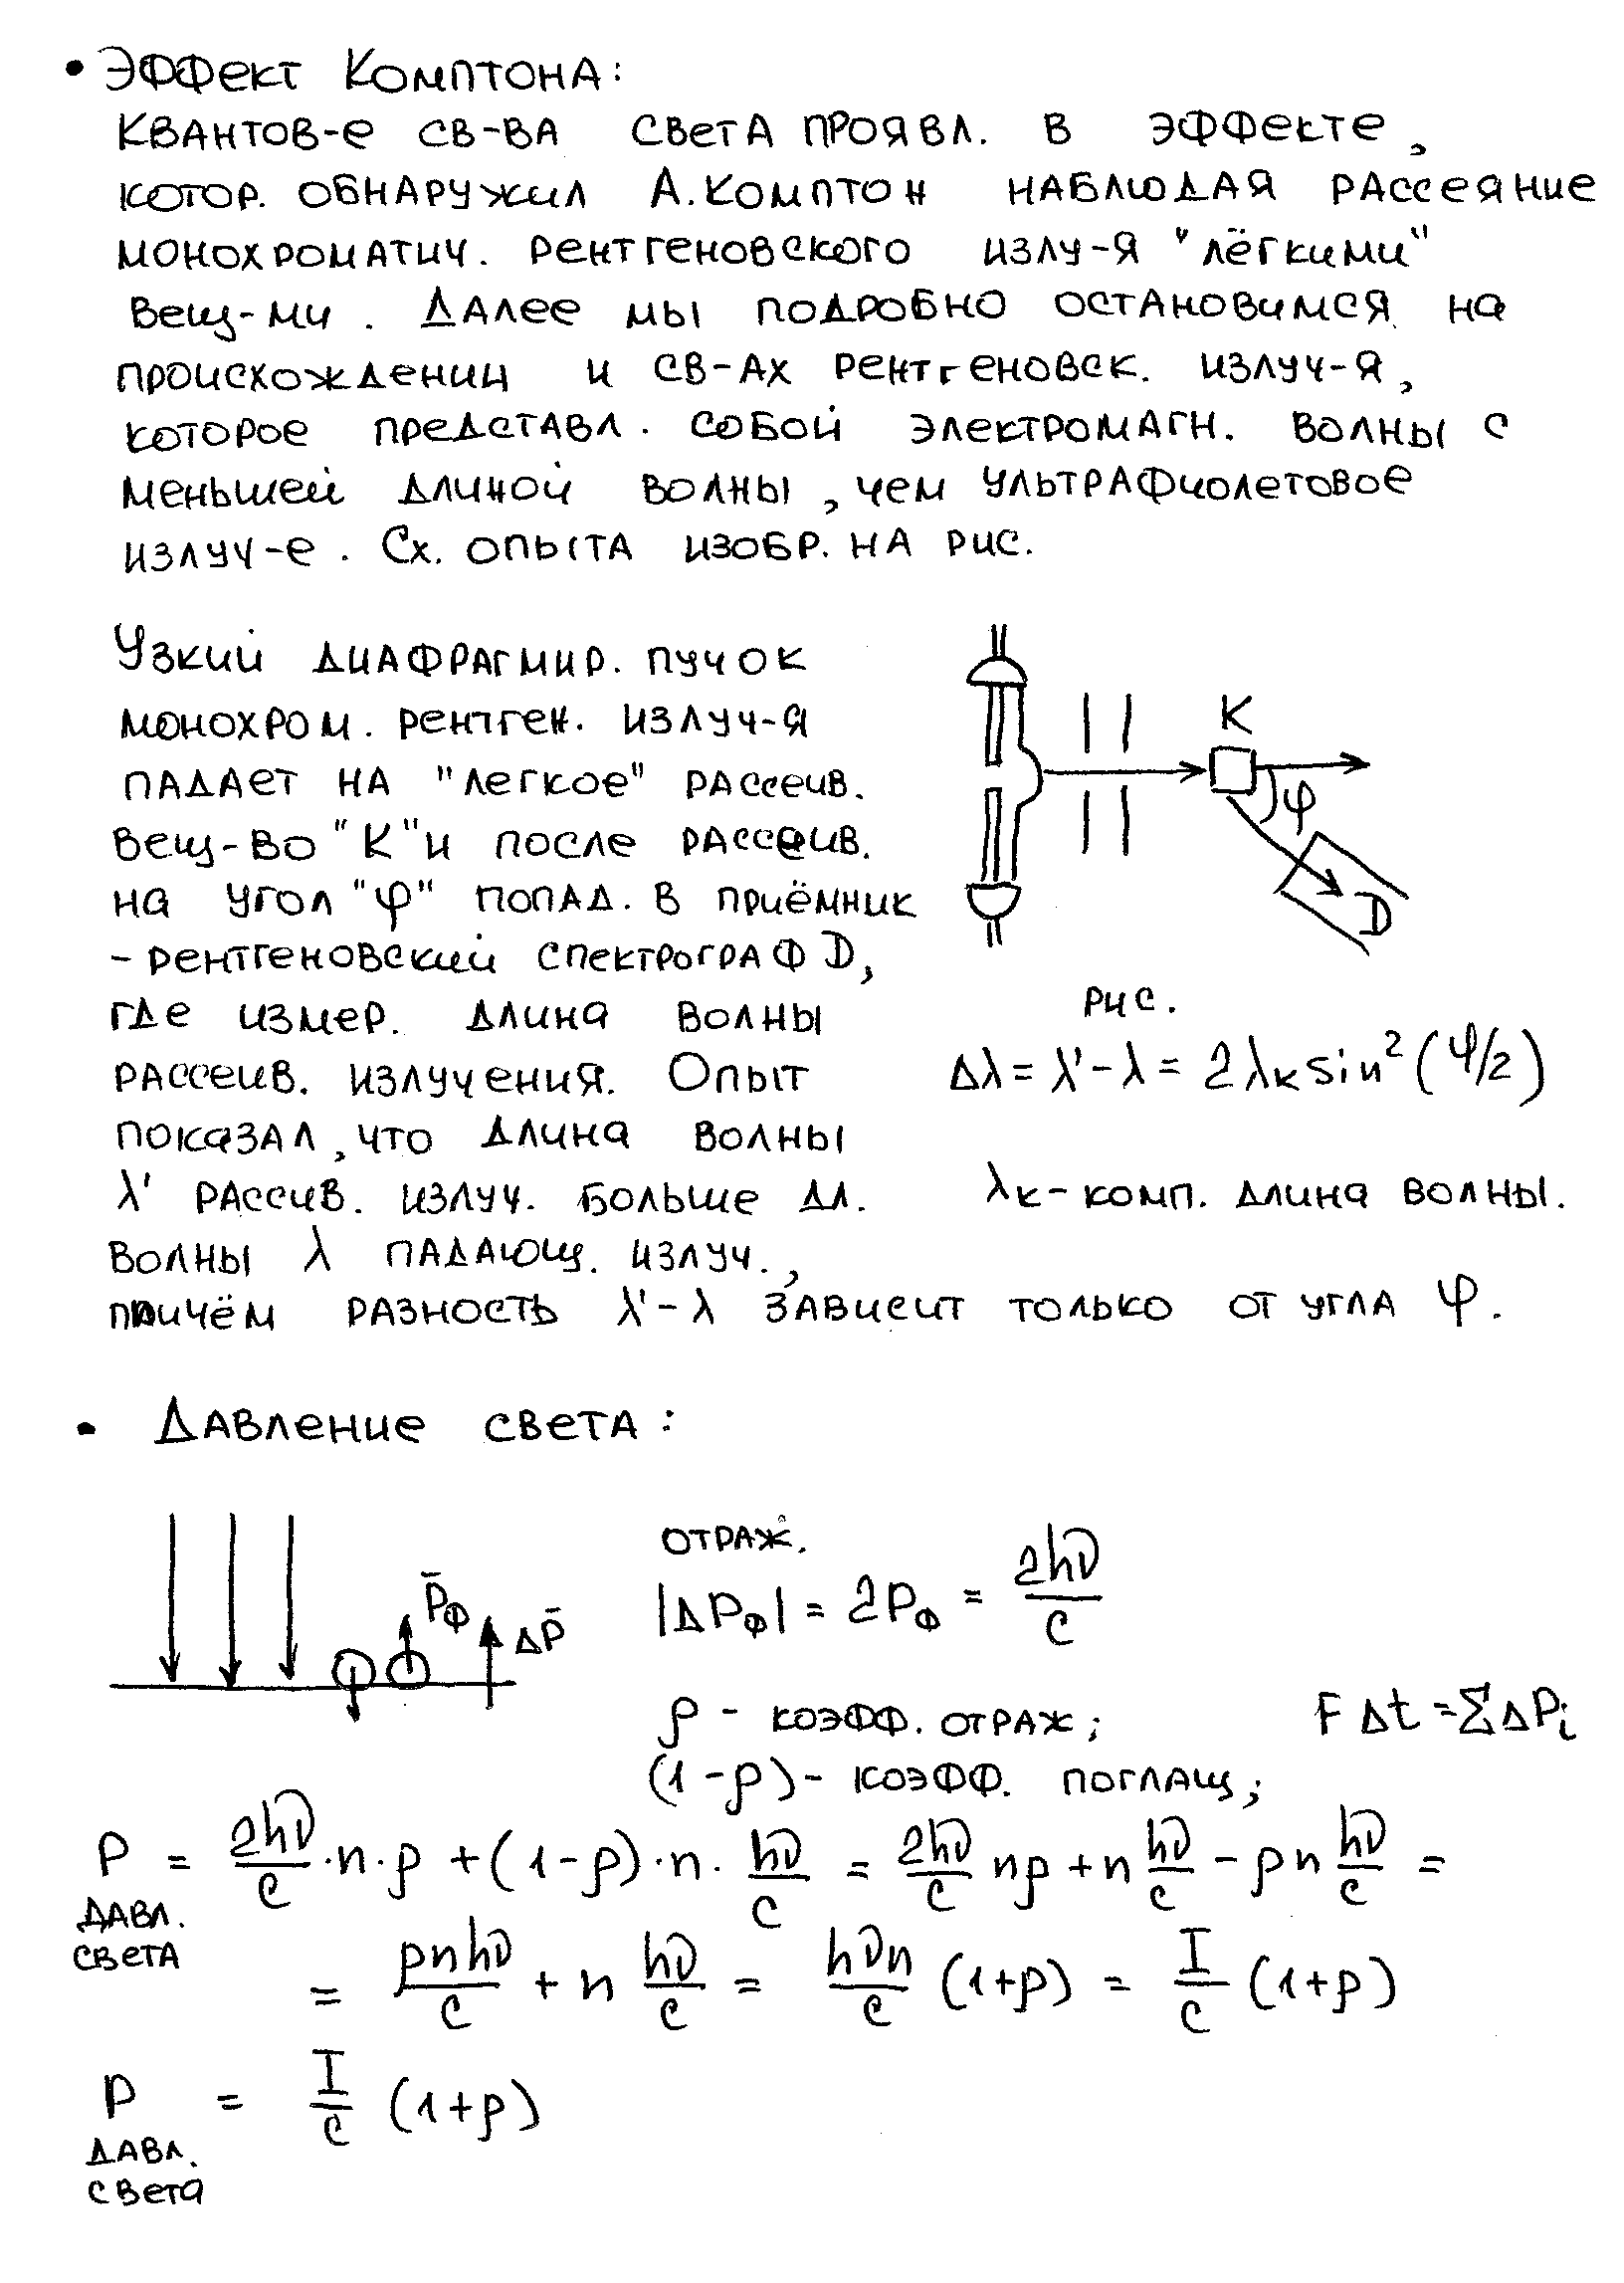 • Эффект Комптона:
Квантов-е св-ва света проявл. в эффекте,
котор. обнаружил А. Комптон наблюдая рассеяние
монохроматич. рентгеновского излу-я "лёгкими"
вещ-ми. Далее мы подробно остановимся на
происхождении и св-ах рентгеновск. излуч-я,
которое представл. собой электромагн. волны с
меньшей длиной волны, чем ультрафиолетовое
излуч-е. Сх. опыта изобр. на рис.
Узкий диафрагмир. пучок
монохром. рентген. излуч-я
падает на "легкое" рассеив.
вещ-во "К" и после рассеив.
на угол "φ" попад. в приёмник
- рентгеновский спектрограф D,
где измер. длина волны
рассеив. излучения. Опыт
показал, что длина волны
λ' рассив. излуч. больше дл.
волны λ падающ. излуч.,
причём разность λ'-λ зависит только от угла φ.
К
φ
D
рис.
Δλ = λ'-λ = 2λк sin²(φ/2)
λк - комп. длина волны.
• Давление света:
P̄ф
ΔP̄
отраж.
|ΔPф| = 2Pф = 2hν/c
ρ - коэфф. отраж;
F Δt = ΣΔPi
(1-ρ) - коэфф. поглащ;
P давл. света = 2hν/c · n · ρ + (1-ρ) · n · hν/c = 2hν/c nρ + n hν/c - ρn hν/c =
= ρnhν/c + n hν/c = hνn/c (1+ρ) = I/c (1+ρ)
P давл. света = I/c (1+ρ)